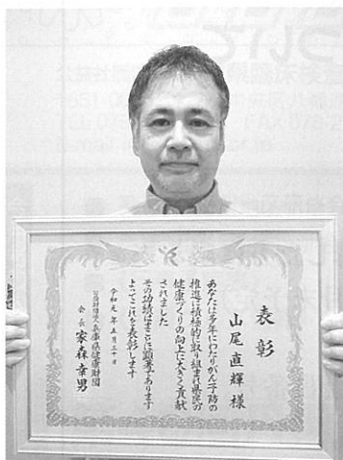 表彰
山尾直輝様
あなたは多年にわたりがん予防の
推進に積極的に取り組まれ県民の
健康づくりの向上に大きく貢献
されました
その功績はまことに顕著であります
よってこれを表彰します
令和元年五月三十日
公益財団法人兵庫県健康財団
会長家森幸男